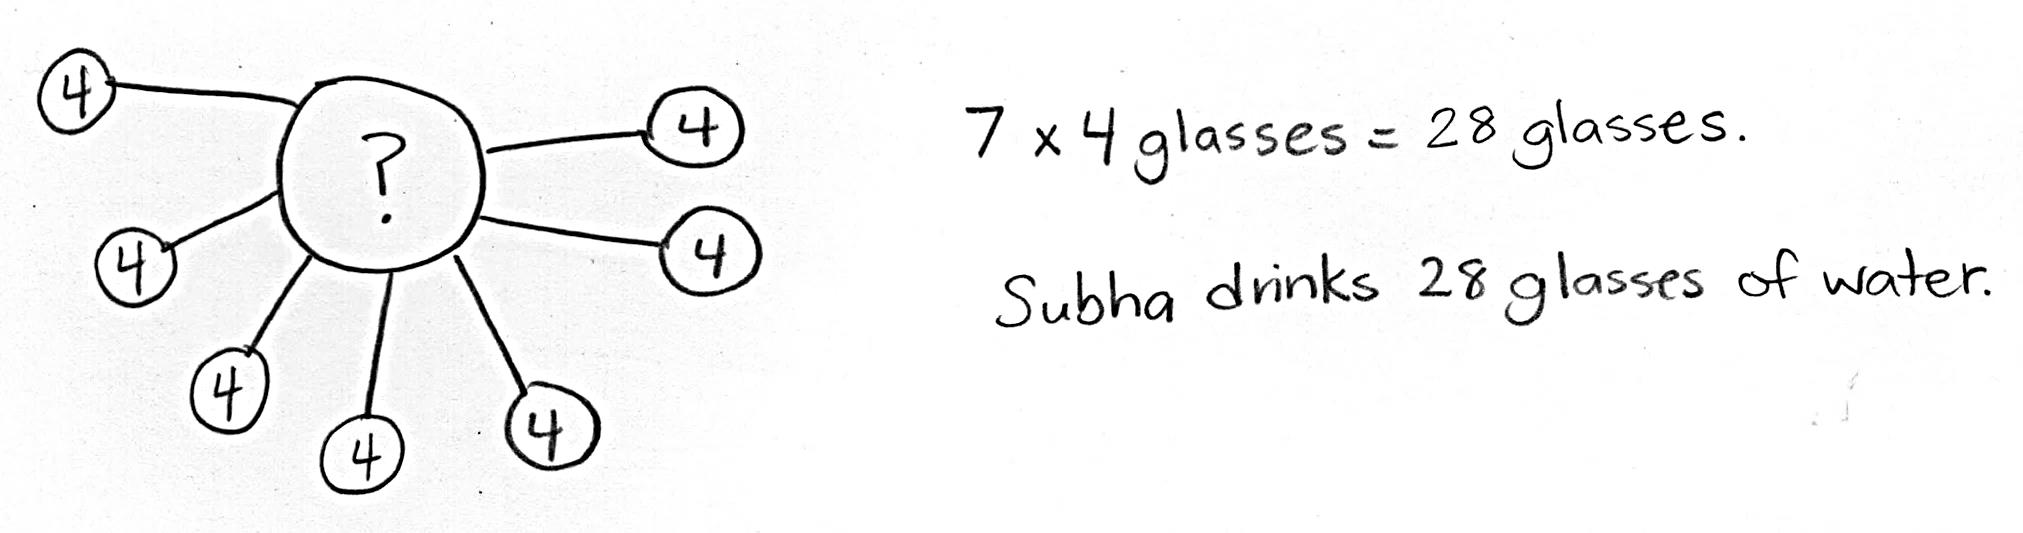 4
?
4
4
4
4
4
4
7 x 4 glasses = 28 glasses.
Subha drinks 28 glasses of water.